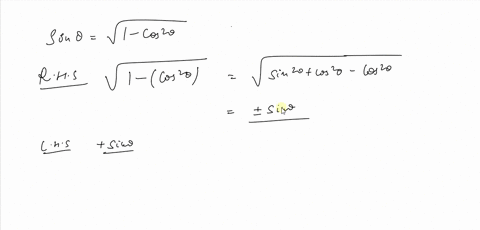 Sin θ = √1 - Cos²θ
R.H.S √1 - (Cos²θ) = √Sin²θ + cos²θ - cos²θ
= ± Sinθ
L.H.S + Sinθ